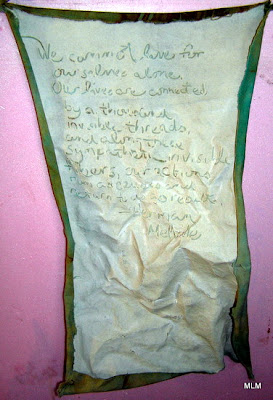 We cannot live for
ourselves alone.
Our lives are connected
by a thousand
invisible threads,
and along these
sympathetic invisible
fibers, our actions
run as causes and
return to us as results.
Herman
Melville
MLM